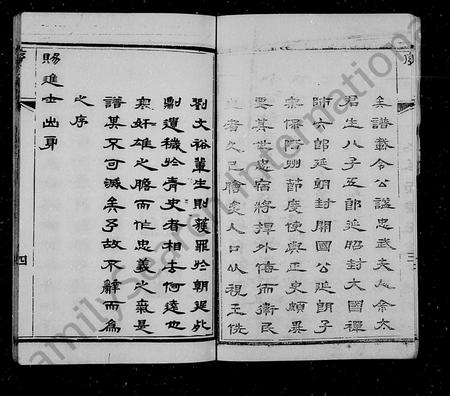 矣譜載令公謚忠武夫人佘太
君生八子五郎延昭封大國禪
師六郎延朝封開國公延朗子
宗保階州節度使與正史頗異
要其世忠宿將捍外侮而衛民
者久已膾炙人口以視王侁
劉文裕輩生則獲罪於朝廷死
則遺穢於青史者相去何遠也
寒奸雄之膽而作忠義之氣是
譜其不可滅矣予故不辭而為
之序
賜進士出身
序
四
三
Family Search International